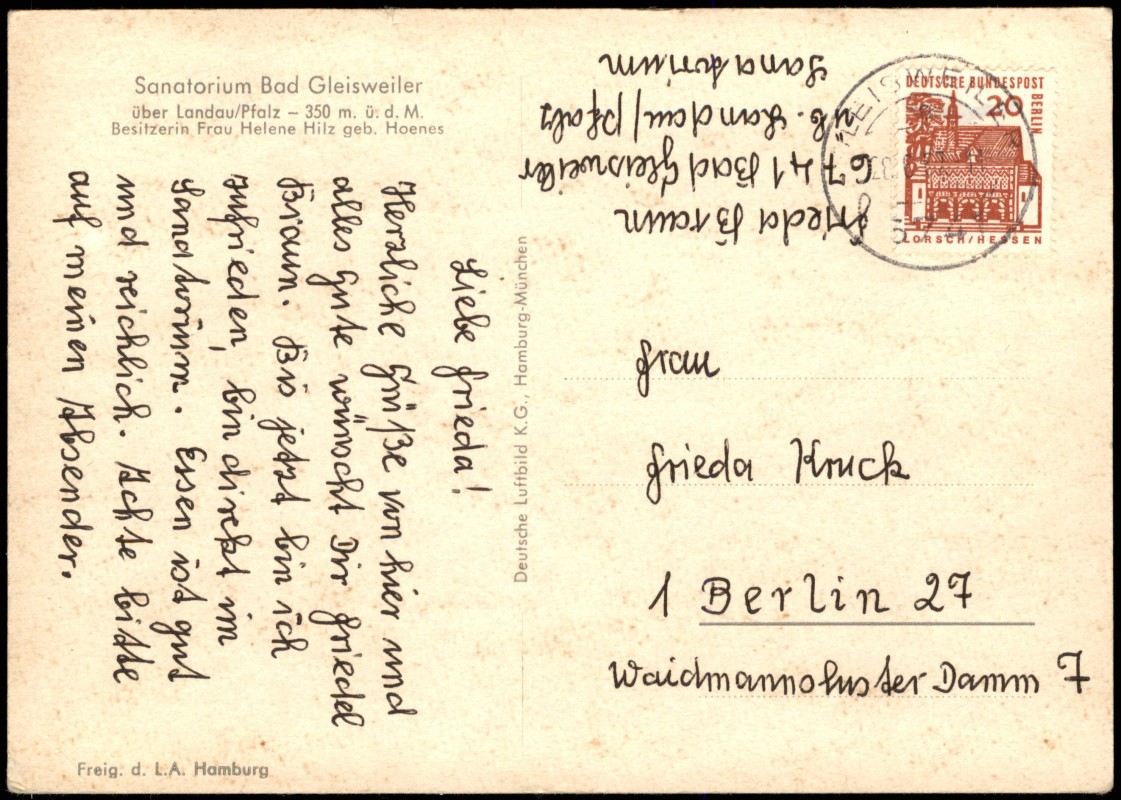 Sanatorium Bad Gleisweiler
über Landau/Pfalz – 350 m. ü. d. M.
Besitzerin Frau Helene Hilz geb. Hoenes
Liebe Frieda!
Herzliche Grüße von hier und
alles Gute wünscht Dir Friedel
Braun. Bis jetzt bin ich
zufrieden, bin direkt im
Sanatorium. Essen ist gut
und reichlich. Achte bitte
auf meinen Absender.
Freig. d. L.A. Hamburg
Deutsche Luftbild K.G., Hamburg-München
Frieda Braun
6741 Bad Gleisweiler
üb. Landau/Pfalz
Sanatorium
DEUTSCHE BUNDESPOST
BERLIN
20
LORSCH/HESSEN
GLEISWEILER
6741
Frau
Frieda Kruck
1 Berlin 27
Waidmannsluster Damm 7